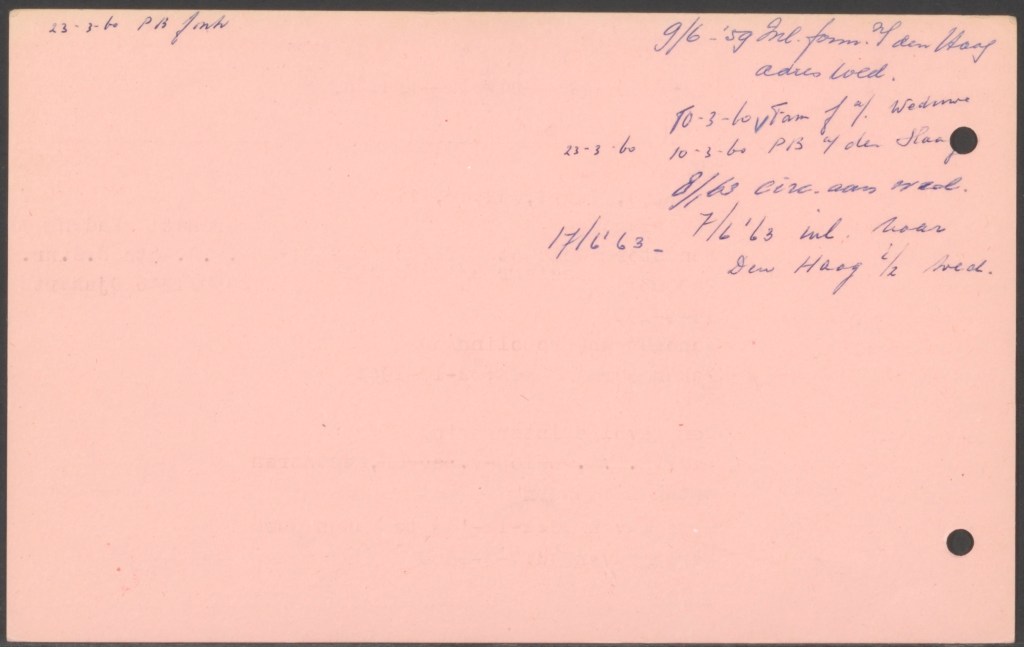 23-3-60 PB
9/6-'59 Inl. form. a/ den Haag
adres wed.
10-3-60 Fam a/. Weduwe
23-3-60 10-3-60 PB a/ den Haag
8/1,63 circ. aan wed.
17/6'63 - 7/6'63 inl. naar
Den Haag i/z wed.